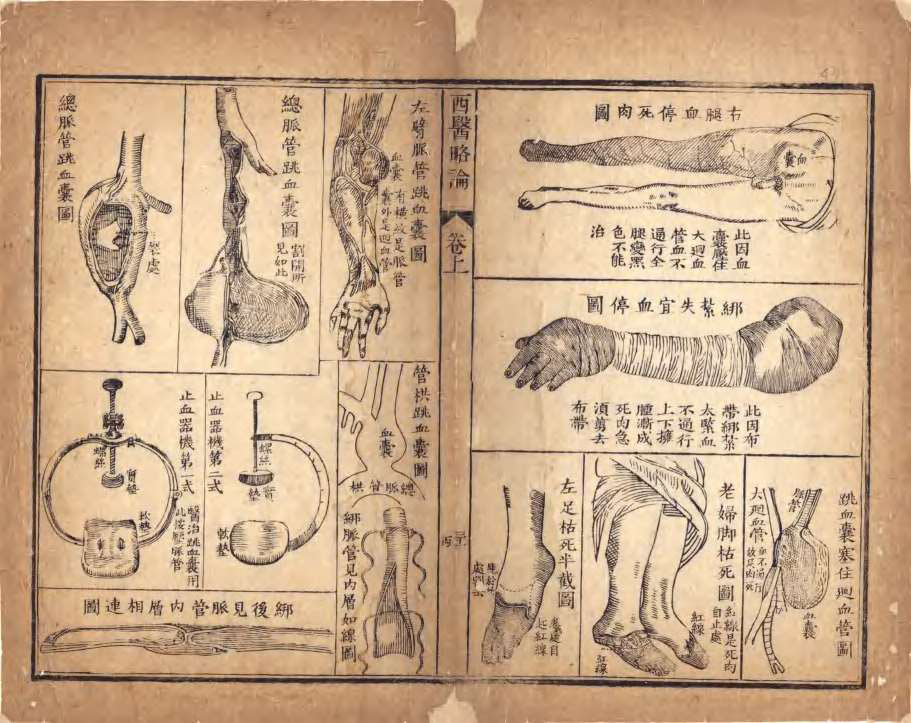 右腿血停死肉圖
血囊
此因血
囊壓住
大廻血
管血不
通行全
腿變黑
色不能
治
綁紮失宜血停圖
此因布
帶綁紮
太緊血
不通行
上下擁
腫漸成
死肉急
須剪去
布帶
跳血囊塞住廻血管圖
脈管
大廻血管
血不通行
故足肉死
血囊
老婦脚枯死圖
紅線是死肉
自止處
紅線
紅線
左足枯死半截圖
死處自
起紅線
西醫略論
卷上
左臂脈管跳血囊圖
血囊
有橫紋是脈管
囊外是廻血管
總脈管跳血囊圖
割開所
見如此
總脈管跳血囊圖
裂處
管栱跳血囊圖
血囊
總脈管栱
綁脈管見內層如線圖
止血器機第二式
螺絲
實墊
軟墊
止血器機第一式
醫治跳血囊用
此按壓脈管
螺絲
實墊
軟墊
綁後見脈管內層相連圖